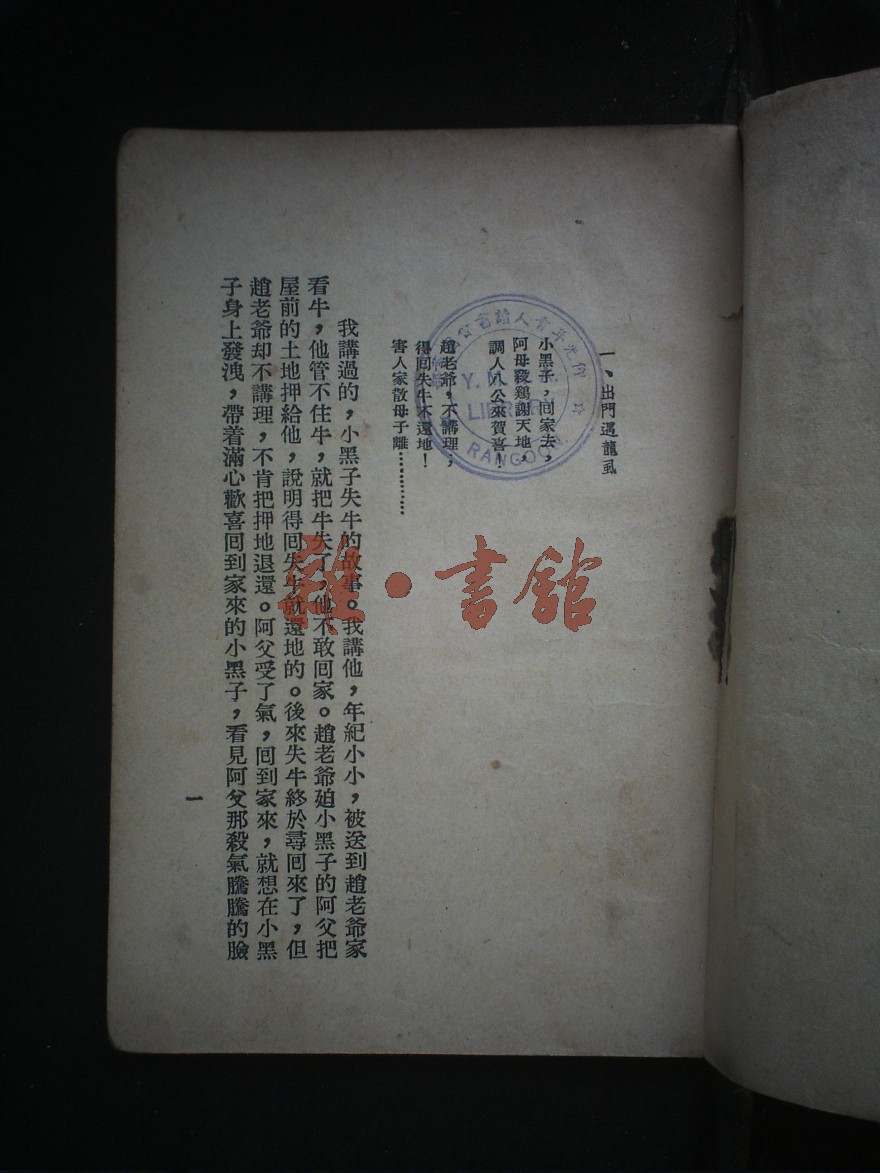 一、出門遇龍虱
小黑子，回家去，
阿母殺鷄謝天地，
調人八公來賀喜！
趙老爺，不講理，
得囘失牛不還地！
害人家散母子離…………
我講過的，小黑子失牛的故事。我講他，年紀小小，被送到趙老爺家
看牛，他管不住牛，就把牛失了，他不敢囘家。趙老爺廹小黑子的阿父把
屋前的土地押給他，說明得囘失牛就還地的。後來失牛終於尋囘來了，但
趙老爺却不講理，不肯把押地退還。阿父受了氣，囘到家來，就想在小黑
子身上發洩，帶着滿心歡喜囘到家來的小黑子，看見阿父那殺氣騰騰的臉
一
Y. M.
LIBRARY
RANGOON
雜·書館